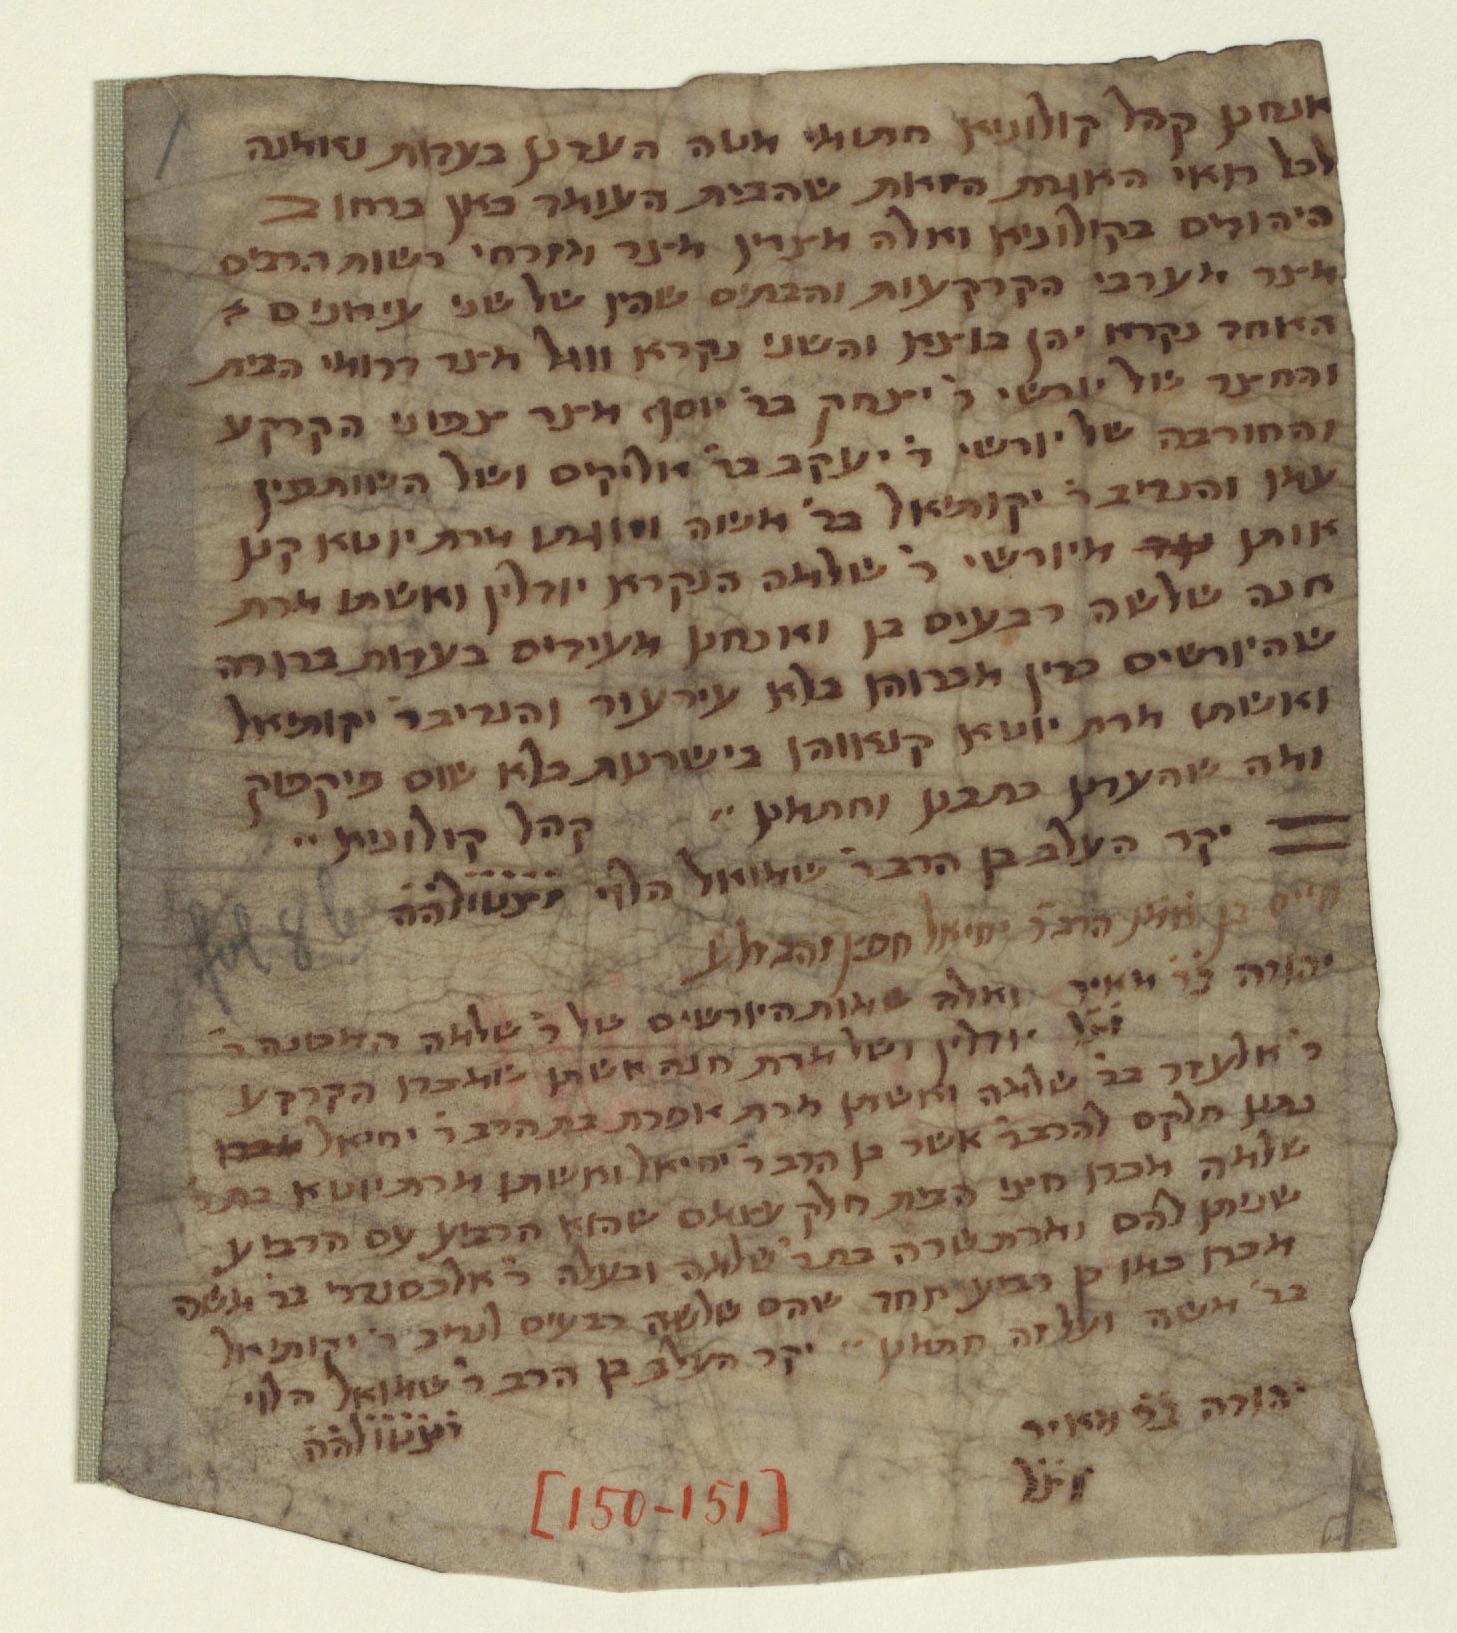 אנחנו קהל קולוניא חתומי מטה העדנו בעדות נאמנה
לכל רואי האגרת הזאת שהבית העומד כאן ברחוב
היהודים בקולוניא ואלה מצריו מצד מזרחי רשות הרבים
מצד מערבי הקרקעות והבתים שהין של שני עירונים
האחד נקרא יהן בוצא והשני נקרא ווגל מצד דרומי הבית
והחצר של יורשי ר׳ יצחק בר׳ יוסף מצד צפוני הקרקע
והחורבה של יורשי ר׳ יעקב בר׳ אליקים ושל השותפין
עמו והנדיב ר׳ יקותיאל בר׳ משה וזוגתו מרת יוטא קנו
אותו מיורשי ר׳ שלמה הנקרא יודלין ואשתו מרת
חנה שלשה רבעים בו ואנחנו מעידים בעדות ברורה
שהיורשים כדין מכרוהו בלא עירעור והנדיב ר׳ יקותיאל
ואשתו מרת יוטא קנאוהו בישרנות בלא שום פיקפוק
ומה שהעדנו כתבנו וחתמנו ״ קהל קולונית ״
יקר העלב בן הרב ר׳ שמואל הלוי
חיים בן הרב ר׳ יחיאל חפץ זהב זל״ע
יהודה בר׳ מאיר ואלה שמות היורשים של ר׳ שלמה המכונה ר׳
יודלין ושל מרת חנה אשתו שמכרו הקרקע
ר׳ אלעזר בר׳ שלמה ואשתו מרת אפרת בת הרב ר׳ יחיאל
נתנו חלקם להרב ר׳ אשר בן הרב ר׳ יחיאל ואשתו מרת יוטא בת ר׳
שלמה מכרו חצי הבית חלק עצמם שהוא הרביע עם הרביע
שניתן להם ומרת שרה בת ר׳ שלמה ובעלה ר׳ אלכסנדרי בר׳ משה
מכרו כמו כן רביע אחד שהם שלשה רבעים לנדיב ר׳ יקותיאל
בר׳ משה ועל זה חתמנו ״ יקר העלב בן הרב ר׳ שמואל הלוי
יהודה בר׳ מאיר
fol 86
[150-151]